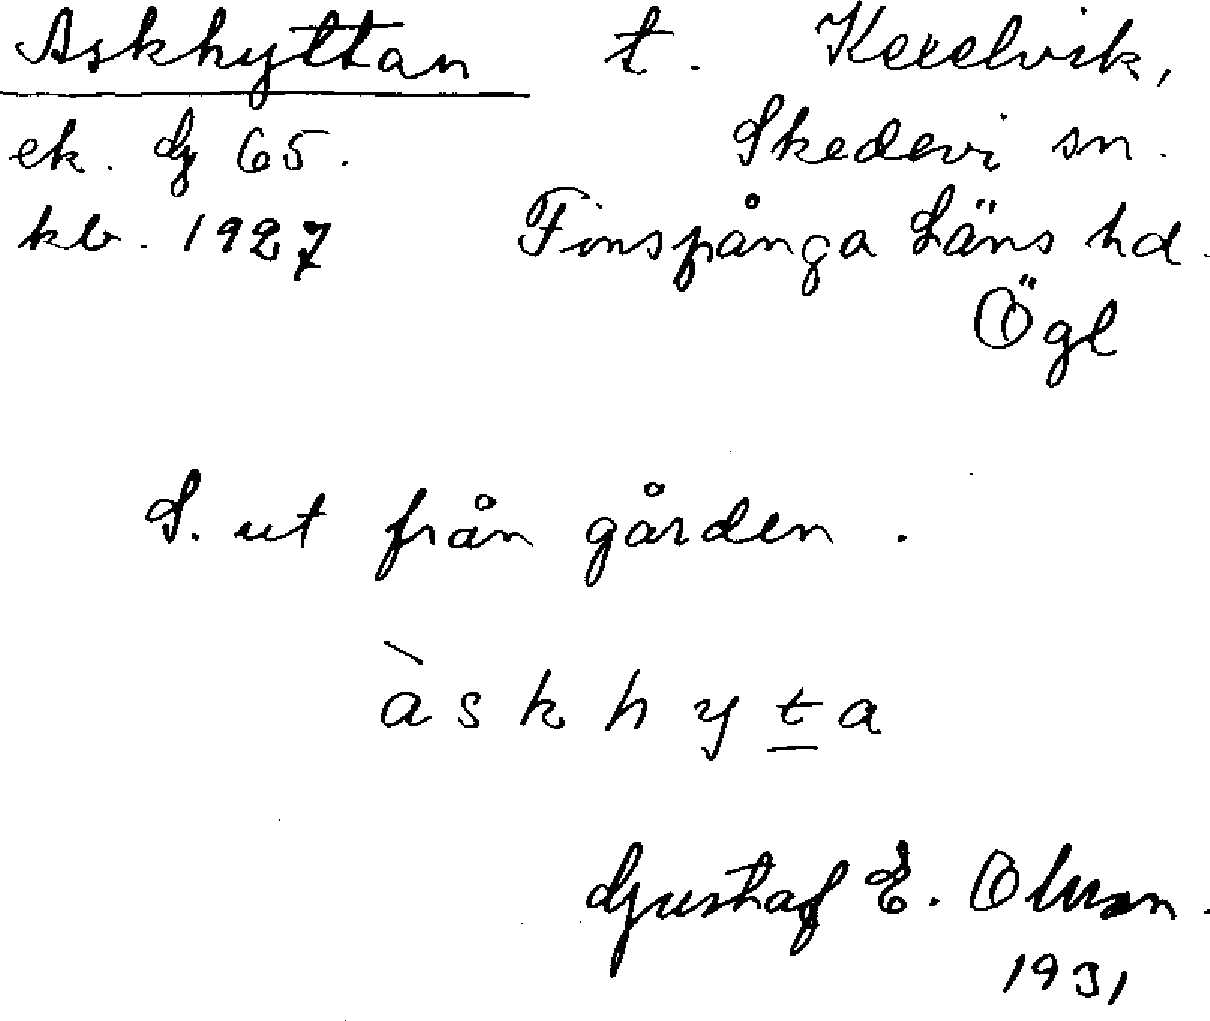 Askhyttan t. Kexelvik,
ek. G 65. Skedevi sn.
kb. 1927 Finspånga Läns hd.
Ögl
S. ut från gården.
àskhyta
Gustaf E. Olsson.
1931